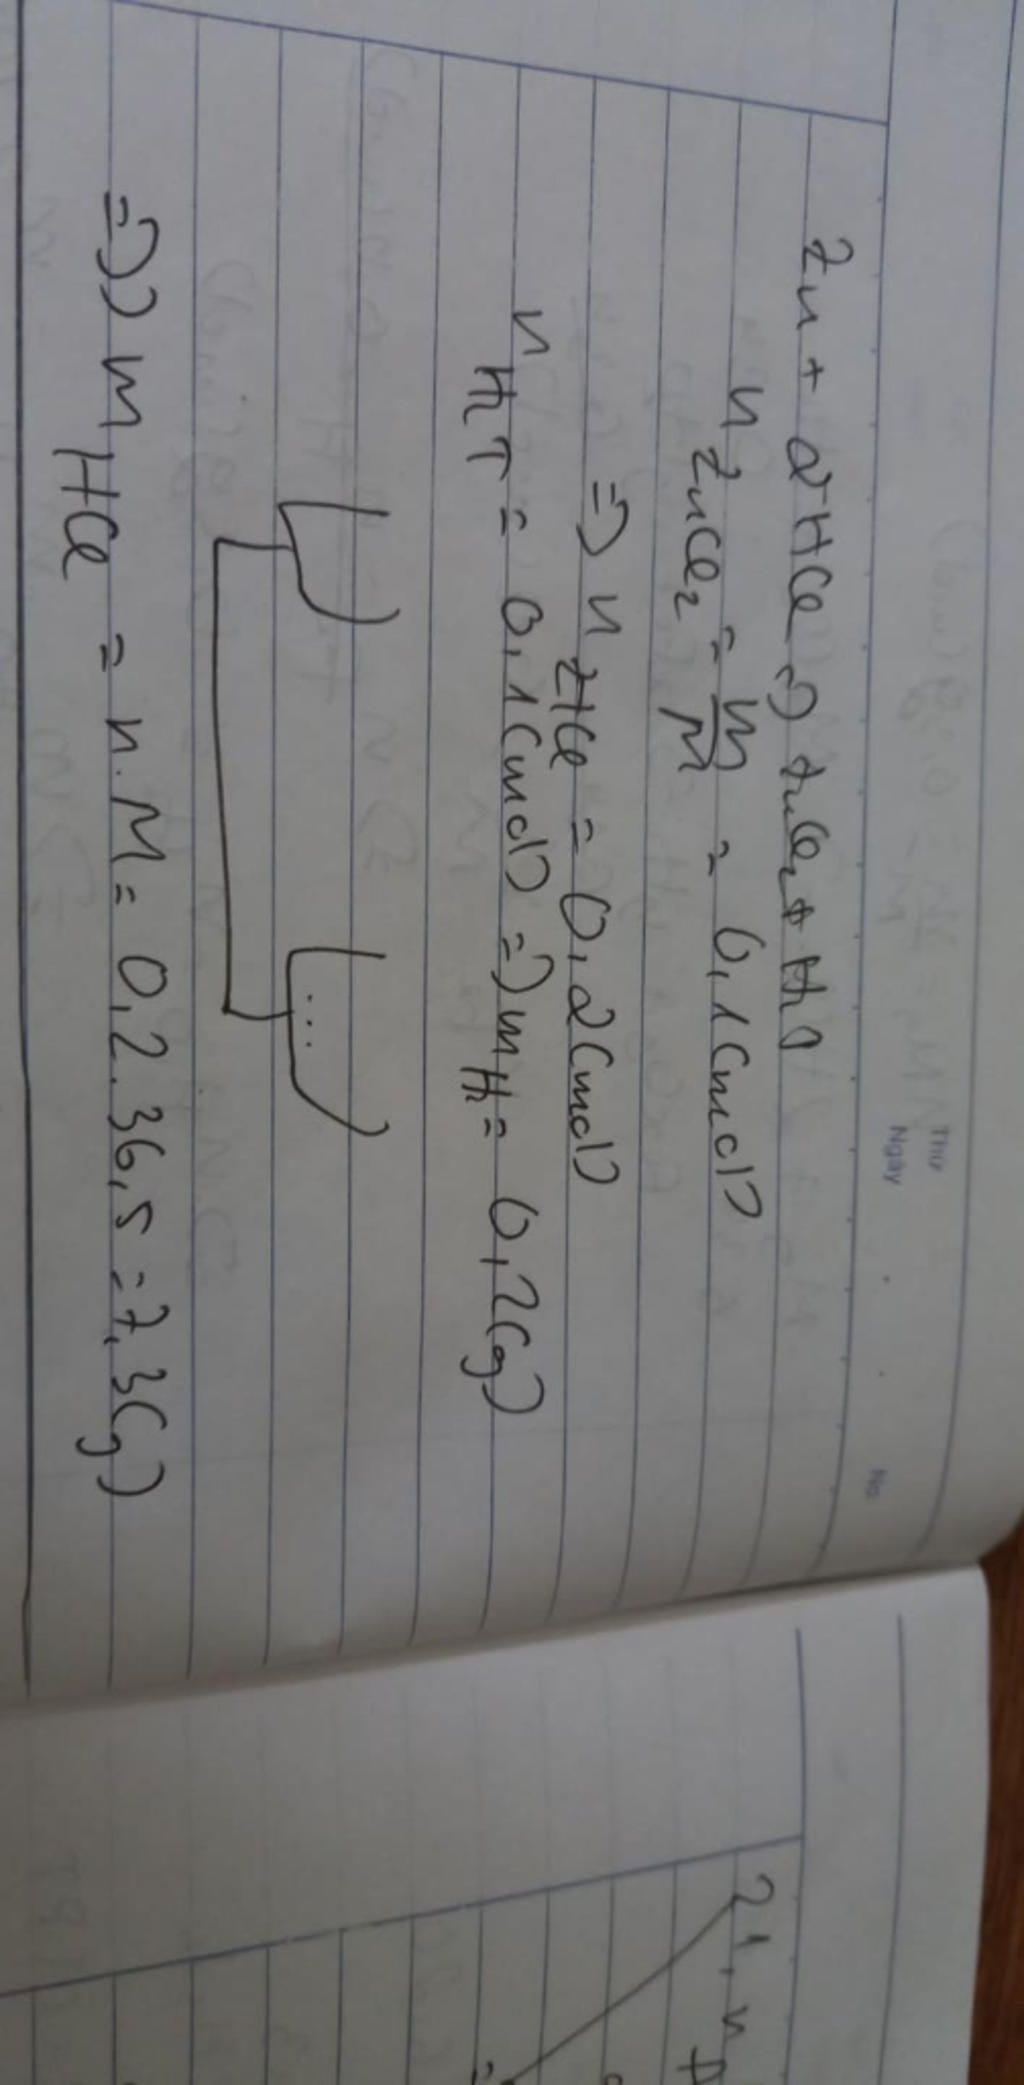 Thứ
Ngày
No
Zn + 2HCl => ZnCl₂ + H₂↑
n ZnCl₂ = m/M = 0,1(mol)
=> n 2HCl = 0,2(mol)
n H₂↑ = 0,1(mol) => m H₂ = 0,2(g)
...
=> m HCl = n.M = 0,2.36,5 = 7,3(g)
21, n